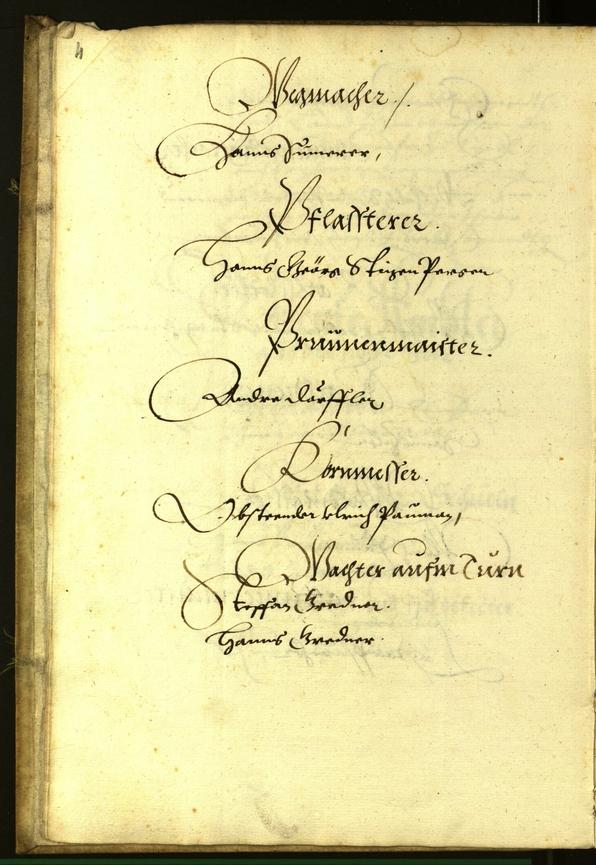 4
Wegmacher /.
Hanns Sumerer,
Pflassterer.
Hanns Geörg
Prunnenmaister.
Andre Dörffler
Kornmesser.
Obsteender Ulrich Pauman,
Wachter aufm Turn
Steffan Gredner.
Hanns Gredner.